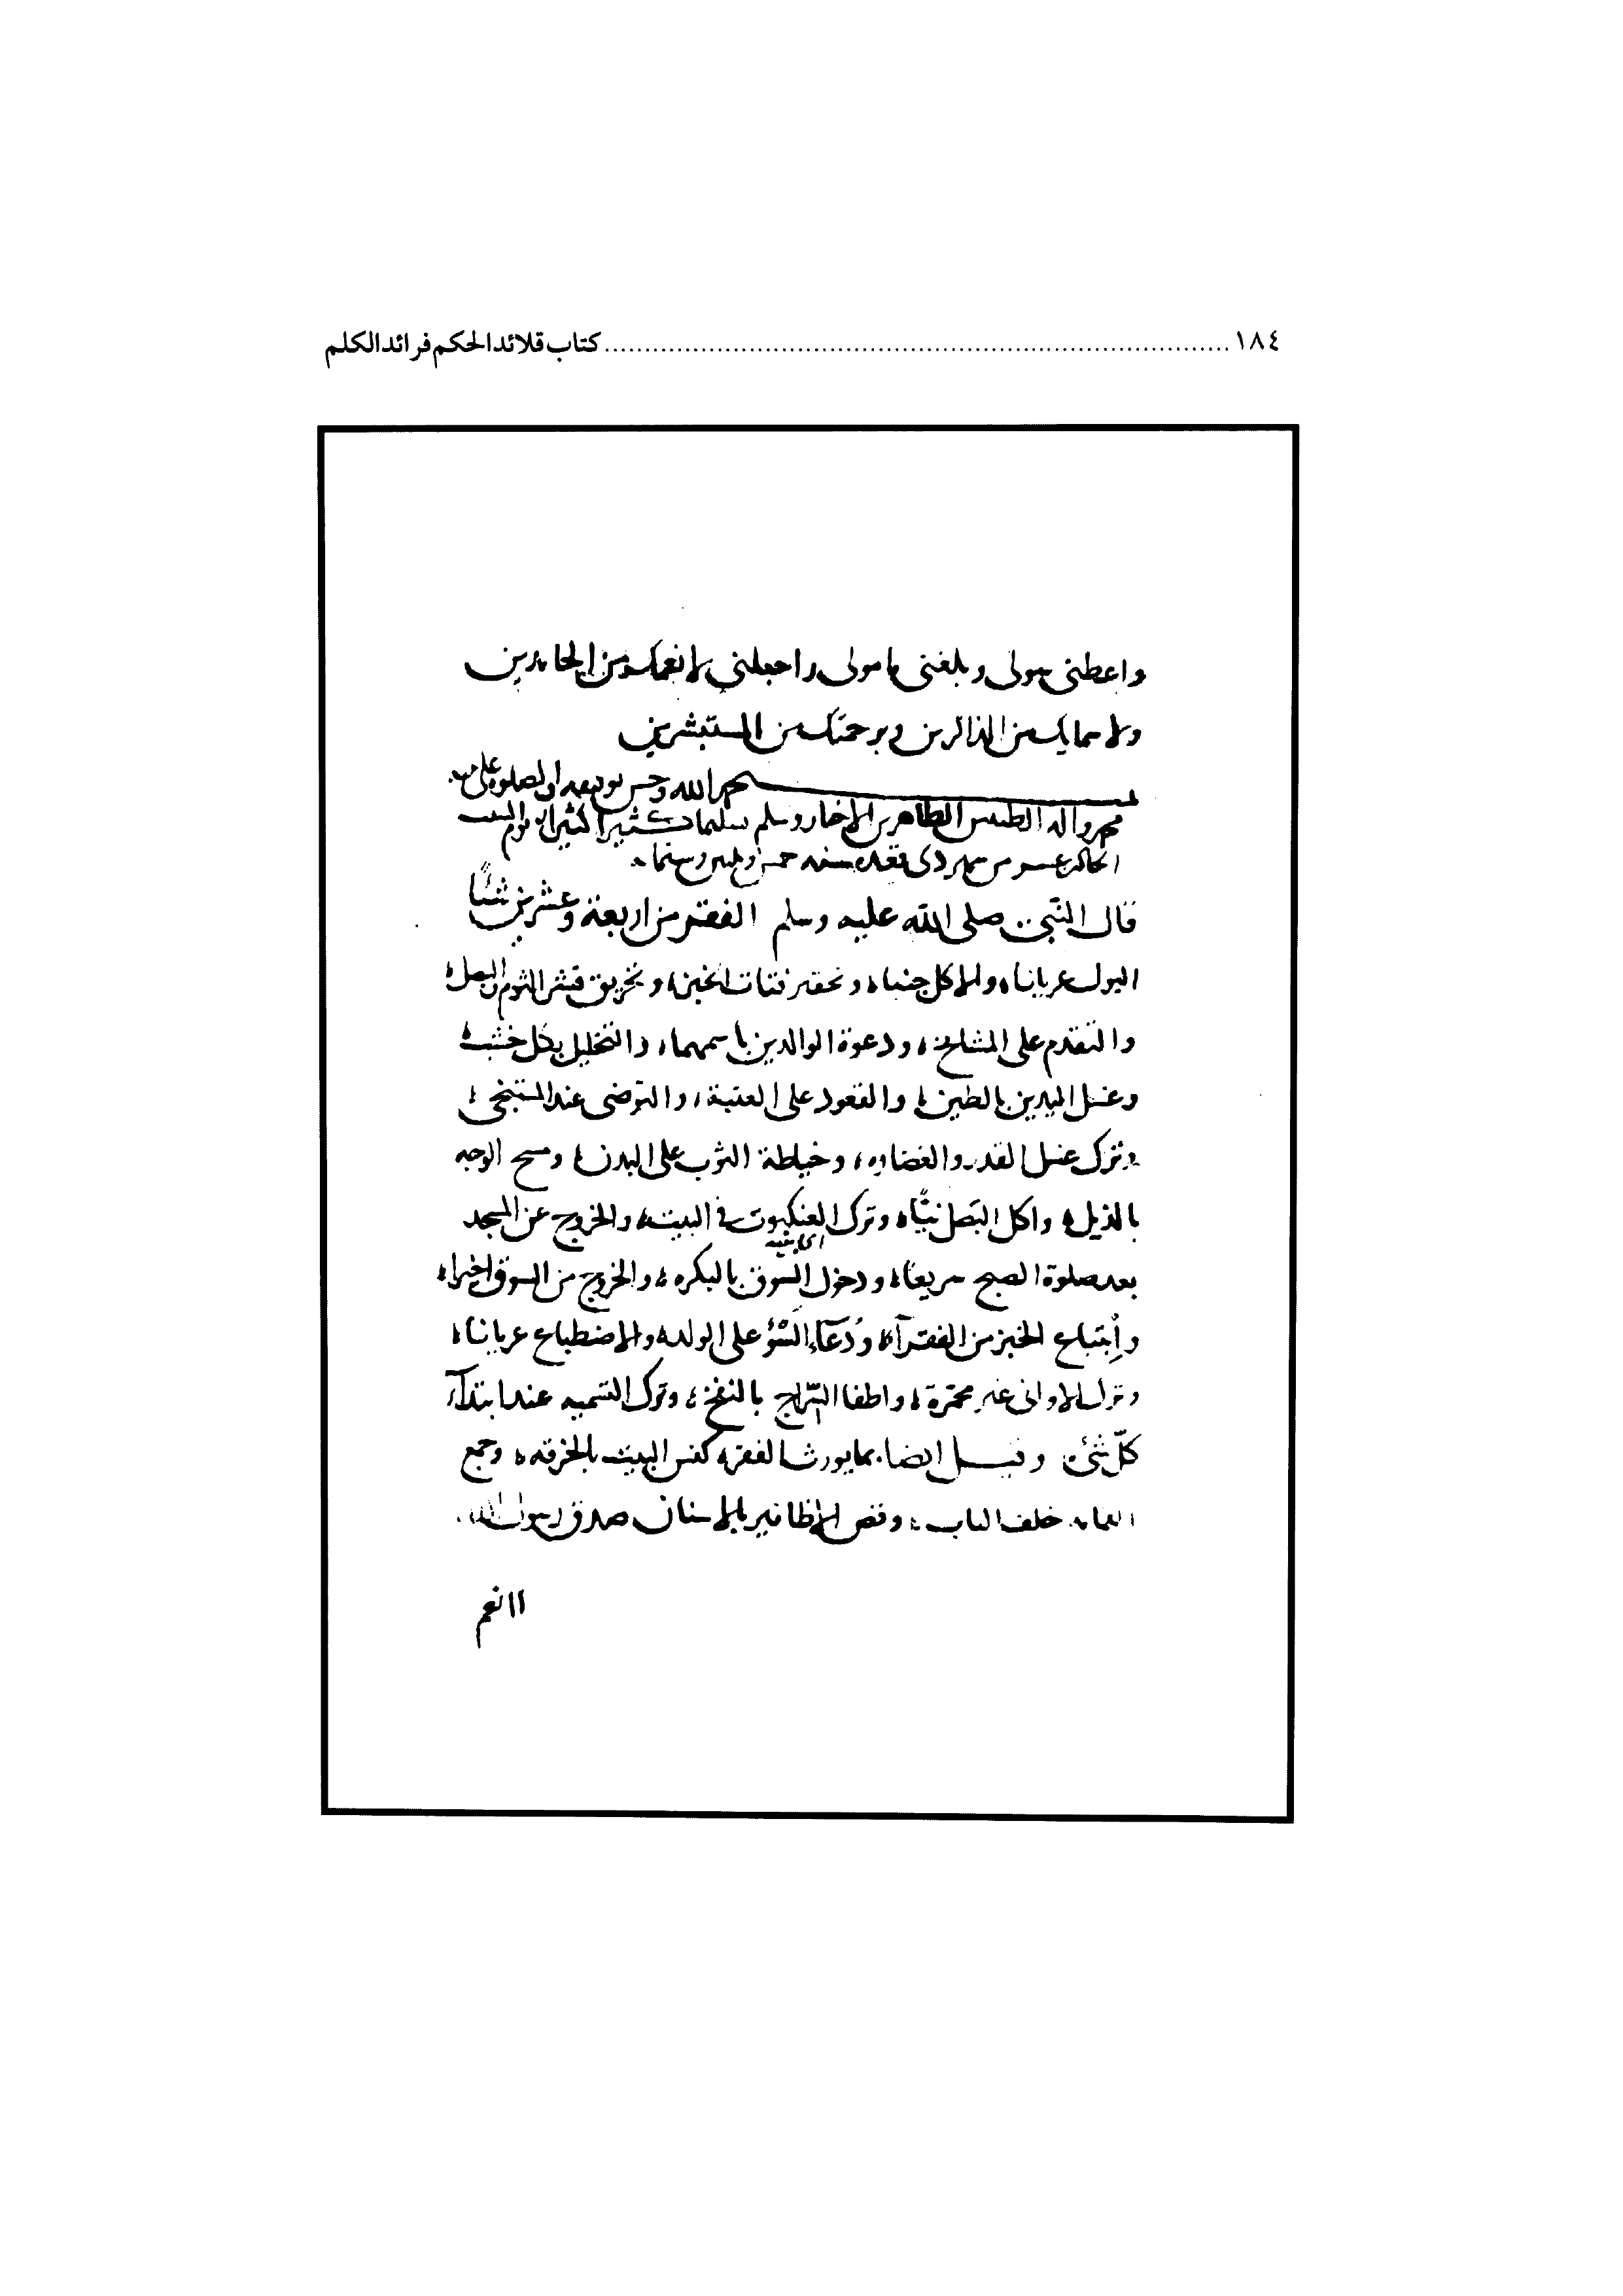 ١٨٤ ........ كتاب قلائد الحكم فرائد الكلم
واعطنى سولى وبلغنى مامولى واجعلنى لانعمك من الحامدين
ولاسمايك من الذاكرين وبرحمتك من المستبشرين
بحمد الله وحسن توفيقه والصلوة على
محمد واله الطيبين الطاهرين الاخيار وسلم تسليما كثيرا كثيرا يوم السبت
الحادى عشر من شهر ذى قعده سنه خمس وستمايه
قال النّبى صلى الله عليه وسلم الفقر من اربعة وعشرين شئًا
البول عريانا، والاكل جنبا، وتحقير فتات الخبز، وتحريق قشر الثوم والبصل،
والتقدم على المشايخ، ودعوة الوالدين باسمهما، والتخليل بكل خشب،
وغسل اليدين بالطين، والقعود على العتبة، والتوضى عند المستنجى،
وترك غسل القدر والغضاره، وخياطة الثوب على البدن، ومسح الوجه
بالذيل، واكل البصل نيّا، وترك العنكبوت فى البيت، والخروج عن المسجد
بعد صلوة الصبح سريعا، ودخول السوق بالبكره، والخروج من السوق اخيرا،
وابتياع الخبز من الفقرآء، ودعآء السّوؤ على الولد، والاضطجاع عريانا،
وترك الاوانى غير مخمّرة، واطفا السّراج بالنفخ، وترك التسميه عند ابتدآء
كلّ شئ وقيل ايضا مما يورث الفقر، كنس البيت بالخرقه، وجمع
القمامه خلف الباب، وقص الاظافير بالاسنان صدق رسول الله
١١ نعم